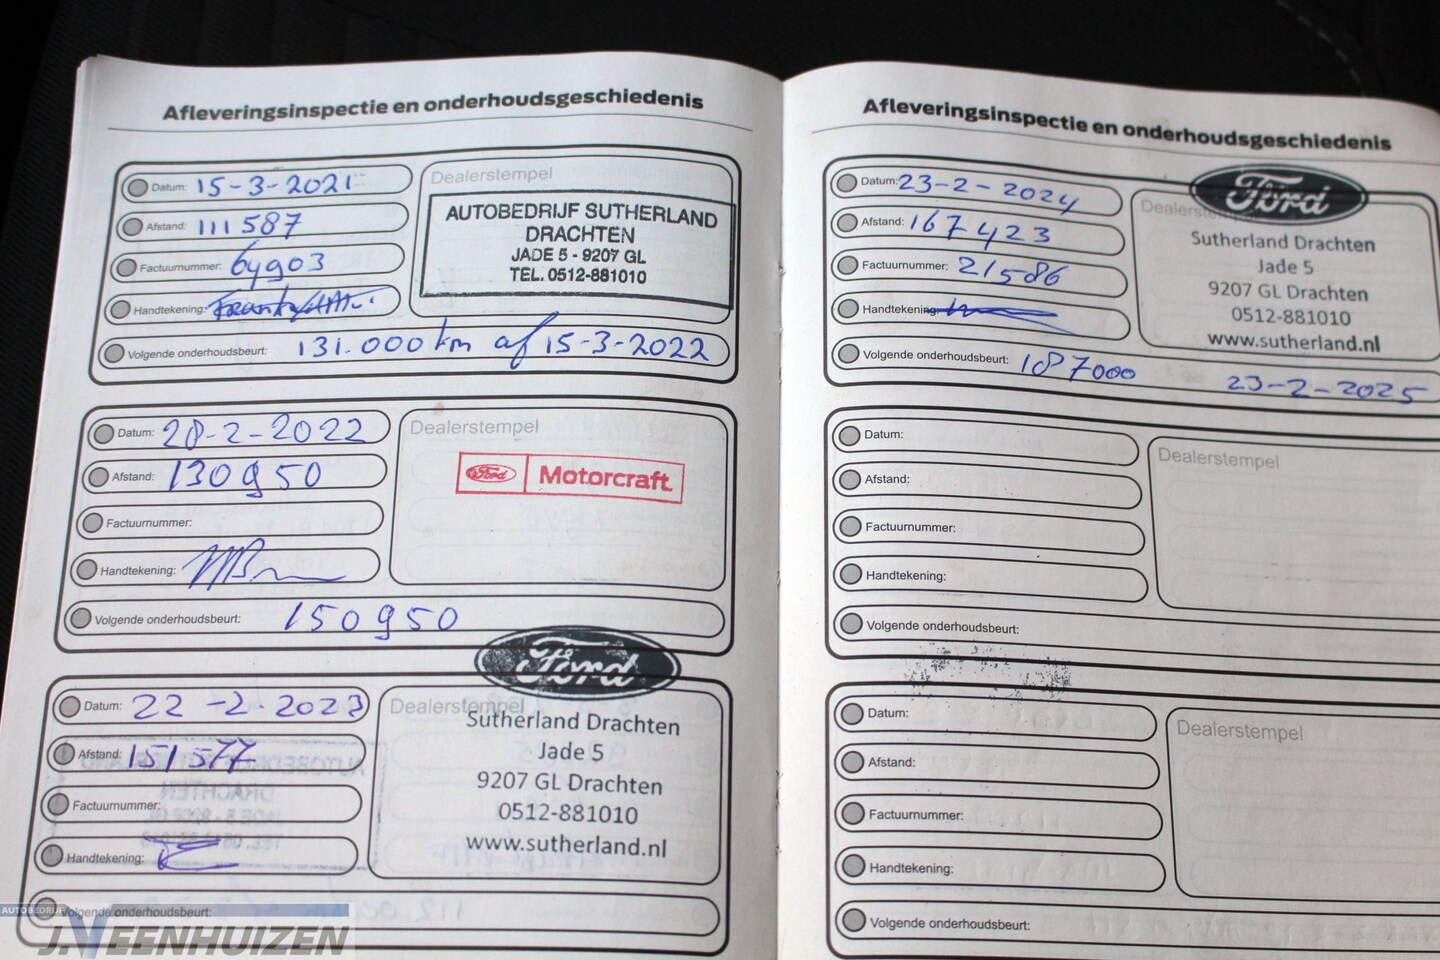 Afleveringsinspectie en onderhoudsgeschiedenis
Datum: 15-3-2021
Afstand: 111587
Factuurnummer: 64903
Handtekening:
Volgende onderhoudsbeurt: 131.000 km af 15-3-2022
Dealerstempel
AUTOBEDRIJF SUTHERLAND
DRACHTEN
JADE 5 - 9207 GL
TEL. 0512-881010
Datum: 28-2-2022
Afstand: 130950
Factuurnummer:
Handtekening:
Volgende onderhoudsbeurt: 150950
Dealerstempel
Ford Motorcraft
Datum: 22-2-2023
Afstand: 151577
Factuurnummer:
Handtekening:
Volgende onderhoudsbeurt:
Ford
Dealerstempel
Sutherland Drachten
Jade 5
9207 GL Drachten
0512-881010
www.sutherland.nl
Afleveringsinspectie en onderhoudsgeschiedenis
Datum: 23-2-2024
Afstand: 167423
Factuurnummer: 21586
Handtekening:
Volgende onderhoudsbeurt: 187000 23-2-2025
Ford
Dealerstempel
Sutherland Drachten
Jade 5
9207 GL Drachten
0512-881010
www.sutherland.nl
Datum:
Afstand:
Factuurnummer:
Handtekening:
Volgende onderhoudsbeurt:
Dealerstempel
Datum:
Afstand:
Factuurnummer:
Handtekening:
Volgende onderhoudsbeurt:
Dealerstempel
AUTOBEDRIJF
J.VEENHUIZEN